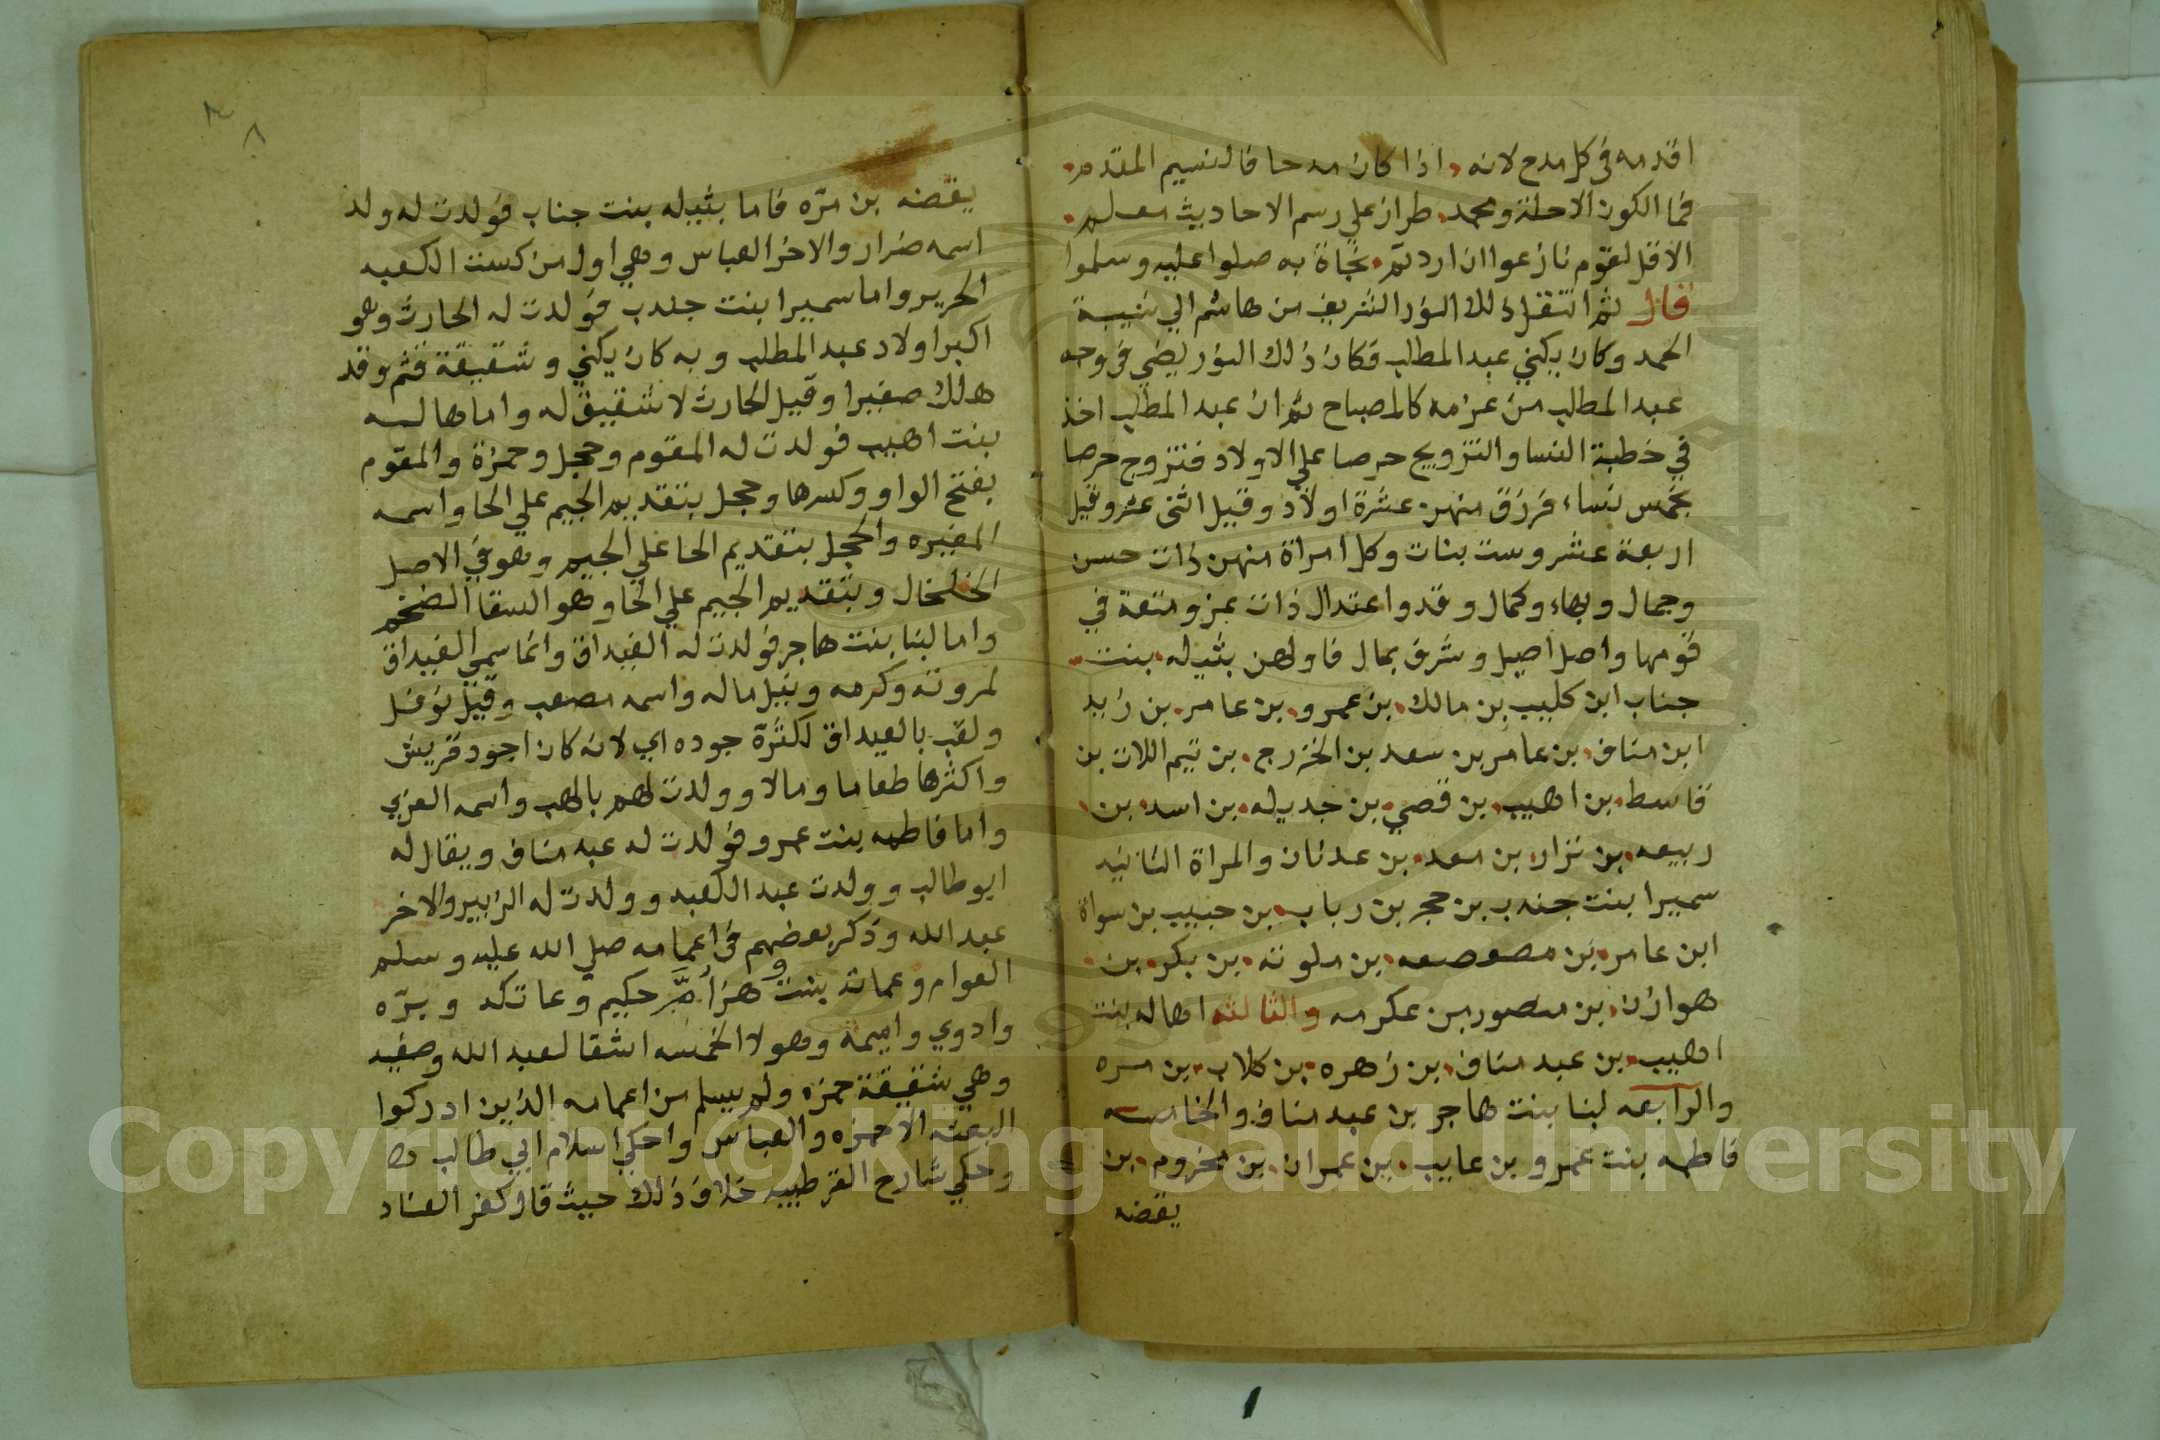 اقدمه في كل مدح لانه اذا كان مدحا فالنسيم المقدم
فما الكون الا حلة ومحمد طراز علي رسم الاحاديث معلم
الا قل لقوم نازعوا ان اردتم نجاة به صلوا عليه وسلموا
قال ثم انتقل ذلك النور الشريف من هاشم الي شيبة
الحمد وكان يكني عبد المطلب فكان ذلك النور يضي في وجه
عبد المطلب من عزمه كالمصباح ثم ان عبد المطلب اخذ
في خطبة النسا والتزويج حرصا علي الاولاد فتزوج حرصا
بخمس نساء فرزق منهن عشرة اولاد وقيل اثني عشر وقيل
اربعة عشر وست بنات وكل امراة منهن ذات حسن
وجمال وبهاء وكمال وقد واعتدال ذات عز ومنعة في
قومها واصل اصيل وشرف بمال فاولهن بثيله بنت
جناب ابن كليب بن مالك بن عمرو بن عامر بن زيد
ابن مناف بن عامر بن سعد بن الخزرج بن تيم اللات بن
قاسط بن اهيب بن قصي بن جديله بن اسد بن
ربيعه بن نزار بن معد بن عدنان والمراة الثانيه
سميرا بنت جندب بن حجر بن رباب بن حبيب بن سواة
ابن عامر بن صعصعه بن ملوته بن بكر بن
هوازن بن منصور بن عكرمه والثالثه اهاله بنت
اهيب بن عبد مناف بن زهره بن كلاب بن مره
والرابعه لبنا بنت هاجر بن عبد مناف والخامسه
فاطمه بنت عمرو بن عايب بن عمران بن مخزوم بن
يقضه
٨
يقضه بن مرّه فاما بثيله بنت جناب فولدت له ولد
اسمه ضرار والاخر العباس وهي اول من كست الكعبه
الحرير واما سميرا بنت جندب فولدت له الحارث وهو
اكبر اولاد عبد المطلب وبه كان يكني وشقيقة قثم وقد
هلك صغيرا وقيل الحارث لا شقيق له واما هاله
بنت اهيب فولدت له المقوم وحجل وحمزة والمقوم
بفتح الواو وكسرها وحجل بتقديم الجيم علي الحا واسمه
المغيره والحجل بتقديم الحا علي الجيم وهو في الاصل
الخلخال وبتقديم الجيم علي الحا وهو السقا الضخم
واما لبنا بنت هاجر فولدت له الغيداق وانما سمي الغيداق
لمروته وكرمه وبذل ماله واسمه مصعب وقيل نوفل
ولقب بالغيداق لكثرة جوده اي لانه كان اجود قريش
واكثرها طعاما ومالا وولدت لهم بالهب واسمه العزي
واما فاطمه بنت عمرو فولدت له عبد مناف ويقال له
ابو طالب وولدت عبد الكعبه وولدت له الزبير والاخر
عبد الله وذكر بعضهم في اعمامه صلي الله عليه وسلم
العوام وعماته بنت وهز ام حكيم وعاتكه وبرّه
واروي واميمة وهولا الخمسه اشقا لعبد الله وصفيه
وهي شقيقة حمزه ولم يسلم من اعمامه الذين ادركوا
البعثه الا حمزه والعباس واحكي اسلام ابي طالب
وحكي شارح القرطبيه خلاف ذلك حيث قال كفر العناد
Copyright © King Saud University